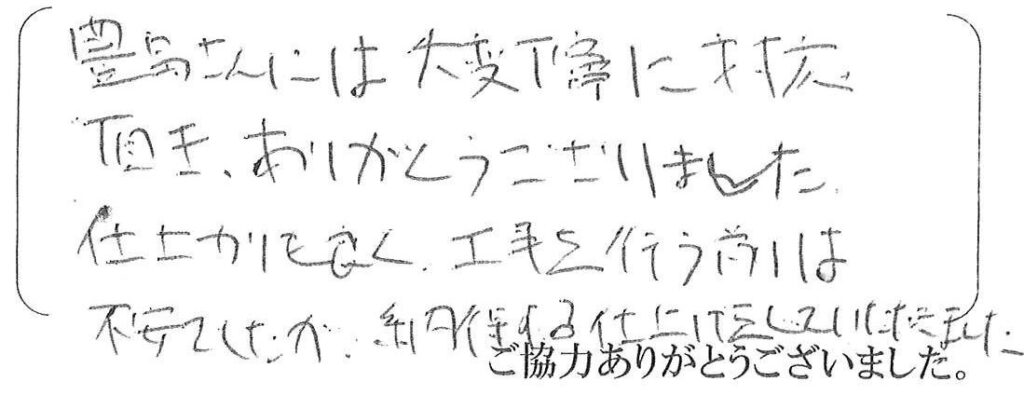 豊島さんには大変丁寧に対応
頂き、ありがとうございました。
仕上がりも良く、工事を行う前は
不安でしたが、納得する仕上げをしていただきました
ご協力ありがとうございました。